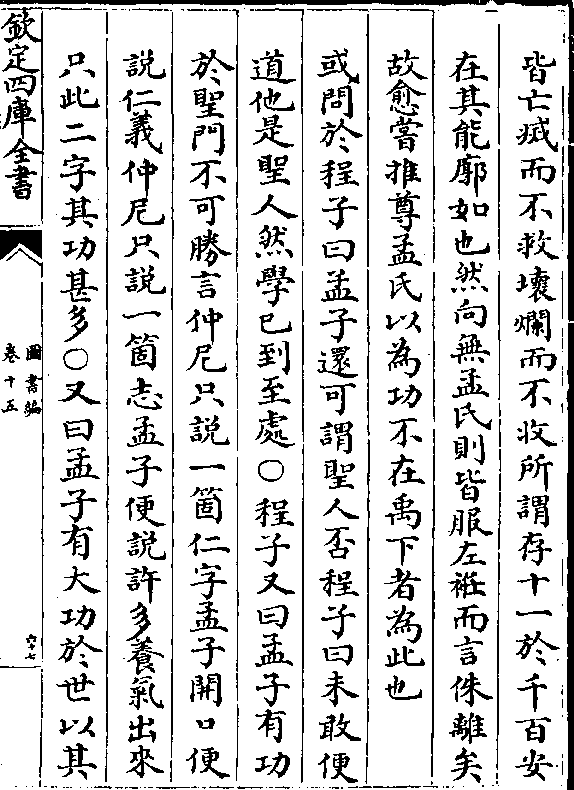 皆亡滅而不救壞爛而不收所謂存十一於千百安
在其能廓如也然向無孟氏則皆服左衽而言侏離矣
故愈嘗推尊孟氏以為功不在禹下者為此也
或問於程子曰孟子還可謂聖人否程子曰未敢便
道他是聖人然學已到至處○程子又曰孟子有功
於聖門不可勝言仲尼只說一箇仁字孟子開口便
說仁義仲尼只說一箇志孟子便說許多養氣出來
只此二字其功甚多○又曰孟子有大功於世以其
欽定四庫全書
圖書編
卷十五
六十七